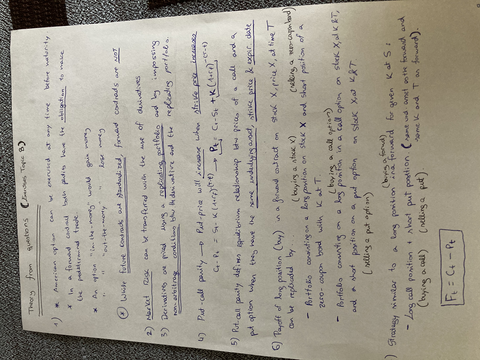 Theory from questions (Courses Topic B)
1) * American option can be exercised at any time before maturity
* In a forward contract both parties have the obligation to make
the predetermined trade
* An option "in-the-money" would gain money
" " "out-the-money" " lose money
* While future contracts are standardized, forward contracts are not
2) Market risk can be transferred with the use of derivatives
3) Derivatives are priced using a replicating portfolio and by imposing
non-arbitrage conditions b/w the derivative and the replicating portfolio.
4) Put-call parity → Put price will increase when strike price increases
Ct - Pt = St - K(1+rf)^-(T-t) → Pt = Ct - St + K(1+rf)^-(T-t)
5) Put-call parity defines equilibrium relationship b/w prices of a call and a
put option when they have the same underlying asset, strike price & expir. date
6) Payoff of long position (buy) in a forward contract on stock X, price K, at time T
can be replicated by (buying a stock X) (selling a zero-coupon bond)
- Portfolio consisting on a long position on stock X and short position of a
zero-coupon bond with K at T.
(buying a call option)
- Portfolio consisting on a long position in a call option on stock X, at K & T,
and a short position on a put option on stock X at K & T
(selling a put option)
) Strategy similar to a long position in a forward for given K at S:
(buying a forward)
- Long call position + short put position (same und. asset as the forward and
(buying a call) (selling a put) same K and T as forward).
Ft = Ct - Pt